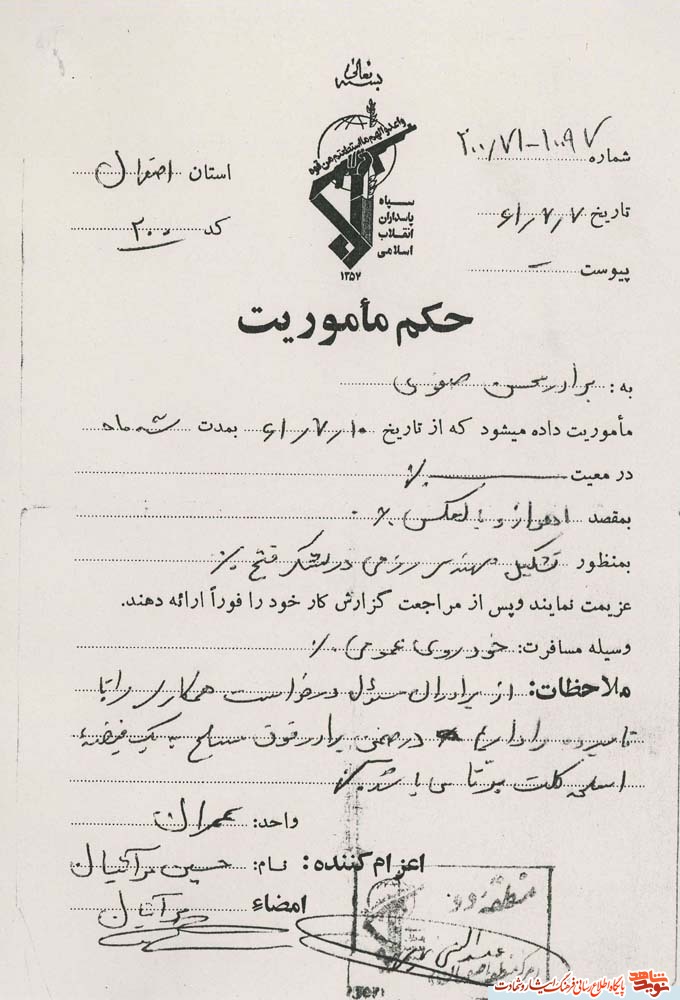 بسمه تعالی
واعدوا لهم ما استطعتم من قوة
سپاه
پاسداران
انقلاب
اسلامی
۱۳۵۷
شماره ۲۰۰/۷۱-۱۰۹۷
تاریخ ۶۱/۷/۷
پیوست –
استان اصفهان
کد ۲۰۰
حکم مأموریت
به: برادر محسن صفوی
مأموریت داده میشود که از تاریخ ۶۱/۷/۱۰ بمدت سه ماه
در معیت
بمقصد اهواز و بالعکس
بمنظور تشکیل مهندسی رزمی در لشکر فتح
عزیمت نمایند وپس از مراجعت گزارش کار خود را فوراً ارائه دهند.
وسیله مسافرت: خودروی عمومی
ملاحظات: از برادران مسئول درخواست همکاری را با
نامبرده را داریم در ضمن برادر فوق مسلح به یک قبضه
اسلحه کلت برتا می باشد
واحد: عمران
اعزام کننده: نام: حسین
امضاء
منطقه دو
پایگاه اطلاع رسانی فرهنگ ایثار و شهادت
نوید شاهد